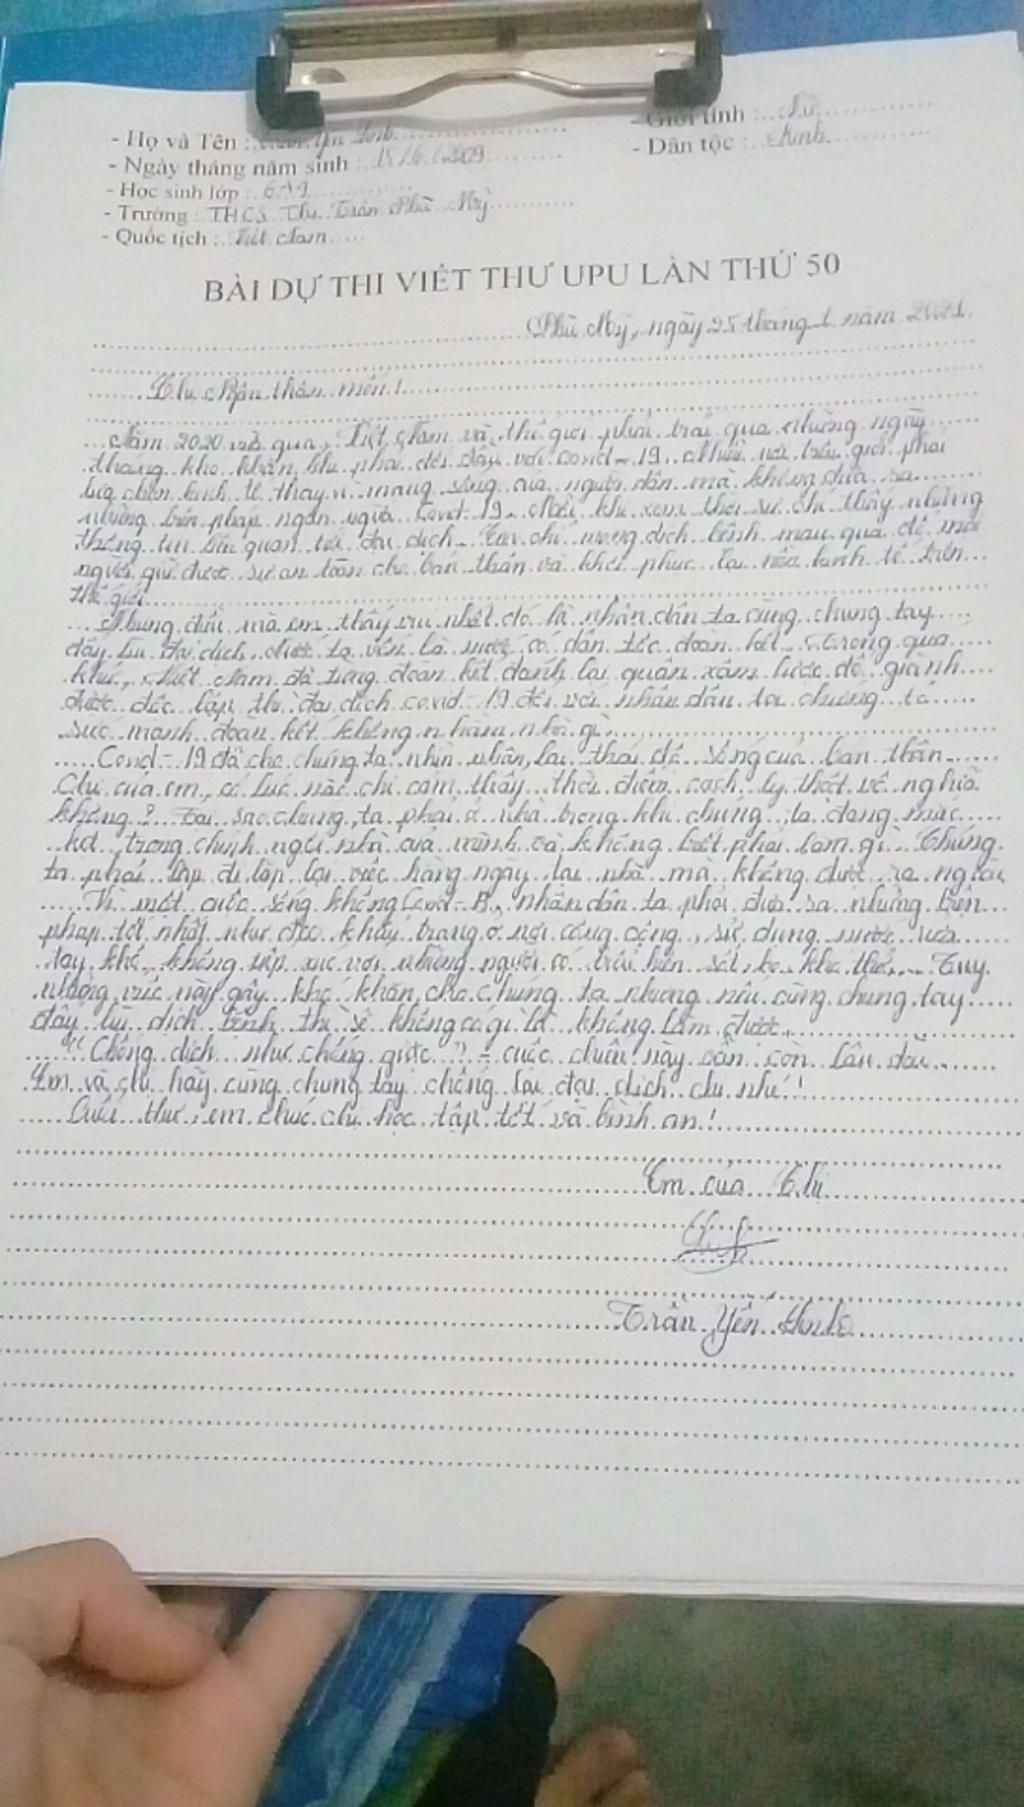 - Họ và Tên : Trần Yến Linh
- Giới tính : Nữ
- Ngày tháng năm sinh : 15/6/2009
- Dân tộc : Kinh
- Học sinh lớp : 6A9
- Trường : THCS Thị Trấn Phù Mỹ
- Quốc tịch : Việt Nam
BÀI DỰ THI VIẾT THƯ UPU LẦN THỨ 50
Phù Mỹ, ngày 25 tháng 1 năm 2021
Chị thân mến!
Năm 2020 vừa qua, Việt Nam và thế giới phải trải qua những ngày
tháng khó khăn khi phải đối đầu với covid-19. Nhiều nơi trên giới phải
kinh tế thay vì mạng sống của người dân mà không đưa ra
những biện pháp ngăn ngừa Covid-19. Mỗi khi xem thời sự chỉ thấy những
thông tin liên quan tới đại dịch. Em chỉ mong dịch bệnh mau qua để mọi
người giữ được sự an toàn cho bản thân và khôi phục lại nền kinh tế trên
thế giới.
Nhưng điều mà em thấy vui nhất đó là nhân dân ta cùng chung tay
đẩy lùi đại dịch. Nước ta vốn là nước có dân tộc đoàn kết. Trong quá
khứ, Việt Nam đã từng đoàn kết đánh lại quân xâm lược để giành
được độc lập thì đại dịch covid-19 đối với nhân dân ta chứng tỏ
sức mạnh đoàn kết không nhằm nhò gì.
Covid-19 đã cho chúng ta nhìn nhận lại thái độ sống của bản thân.
Chị của em, có lúc nào chị cảm thấy thời điểm cách ly thật vô nghĩa
không? Tại sao chúng ta phải ở nhà trong khi chúng ta đang mắc
kẹt trong chính ngôi nhà của mình và không biết phải làm gì. Chúng
ta phải lặp đi lặp lại việc hằng ngày tại nhà mà không được ra ngoài.
Vì một cuộc sống không Covid-19, nhân dân ta phải đưa ra những biện
pháp tốt nhất như đeo khẩu trang ở nơi công cộng, sử dụng nước rửa
tay khô, không tiếp xúc với những người có biểu hiện sốt, ho, khó thở,... Tuy
nhưng việc này gây khó khăn cho chúng ta nhưng nếu cùng chung tay
đẩy lùi dịch bệnh thì sẽ không có gì là không làm được.
" Chống dịch như chống giặc " - cuộc chiến này vẫn còn lâu dài.
Em và chị hãy cùng chung tay chống lại đại dịch chị nhé!
Cuối thư, em chúc chị học tập tốt và bình an!
Em của Chị
Trần Yến Linh